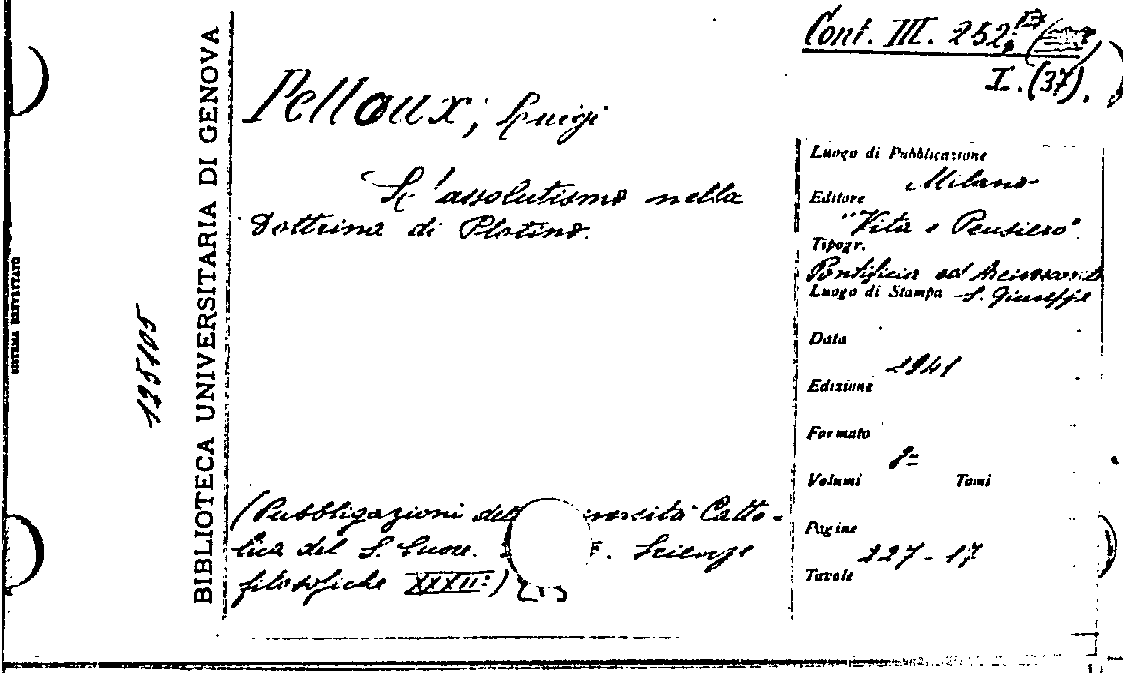 Cont. III. 252,
I. (37).
BIBLIOTECA UNIVERSITARIA DI GENOVA
SISTEMA BREVETTATO
125105
Pelloux, Luigi
L'assolutismo nella
Dottrina di Plotino.
(Pubblicazioni dell' versità Catto-
lica del S. Cuore. Scienze
filosofiche XXXII:)
Luogo di Pubblicazione
Milano
Editore
"Vita e Pensiero"
Tipogr.
Pontificia ed Arcivescovile
Luogo di Stampa S. Giuseppe
Data
1941
Edizione
Formato
8=
Volumi Tomi
Pagine
227-17
Tavole